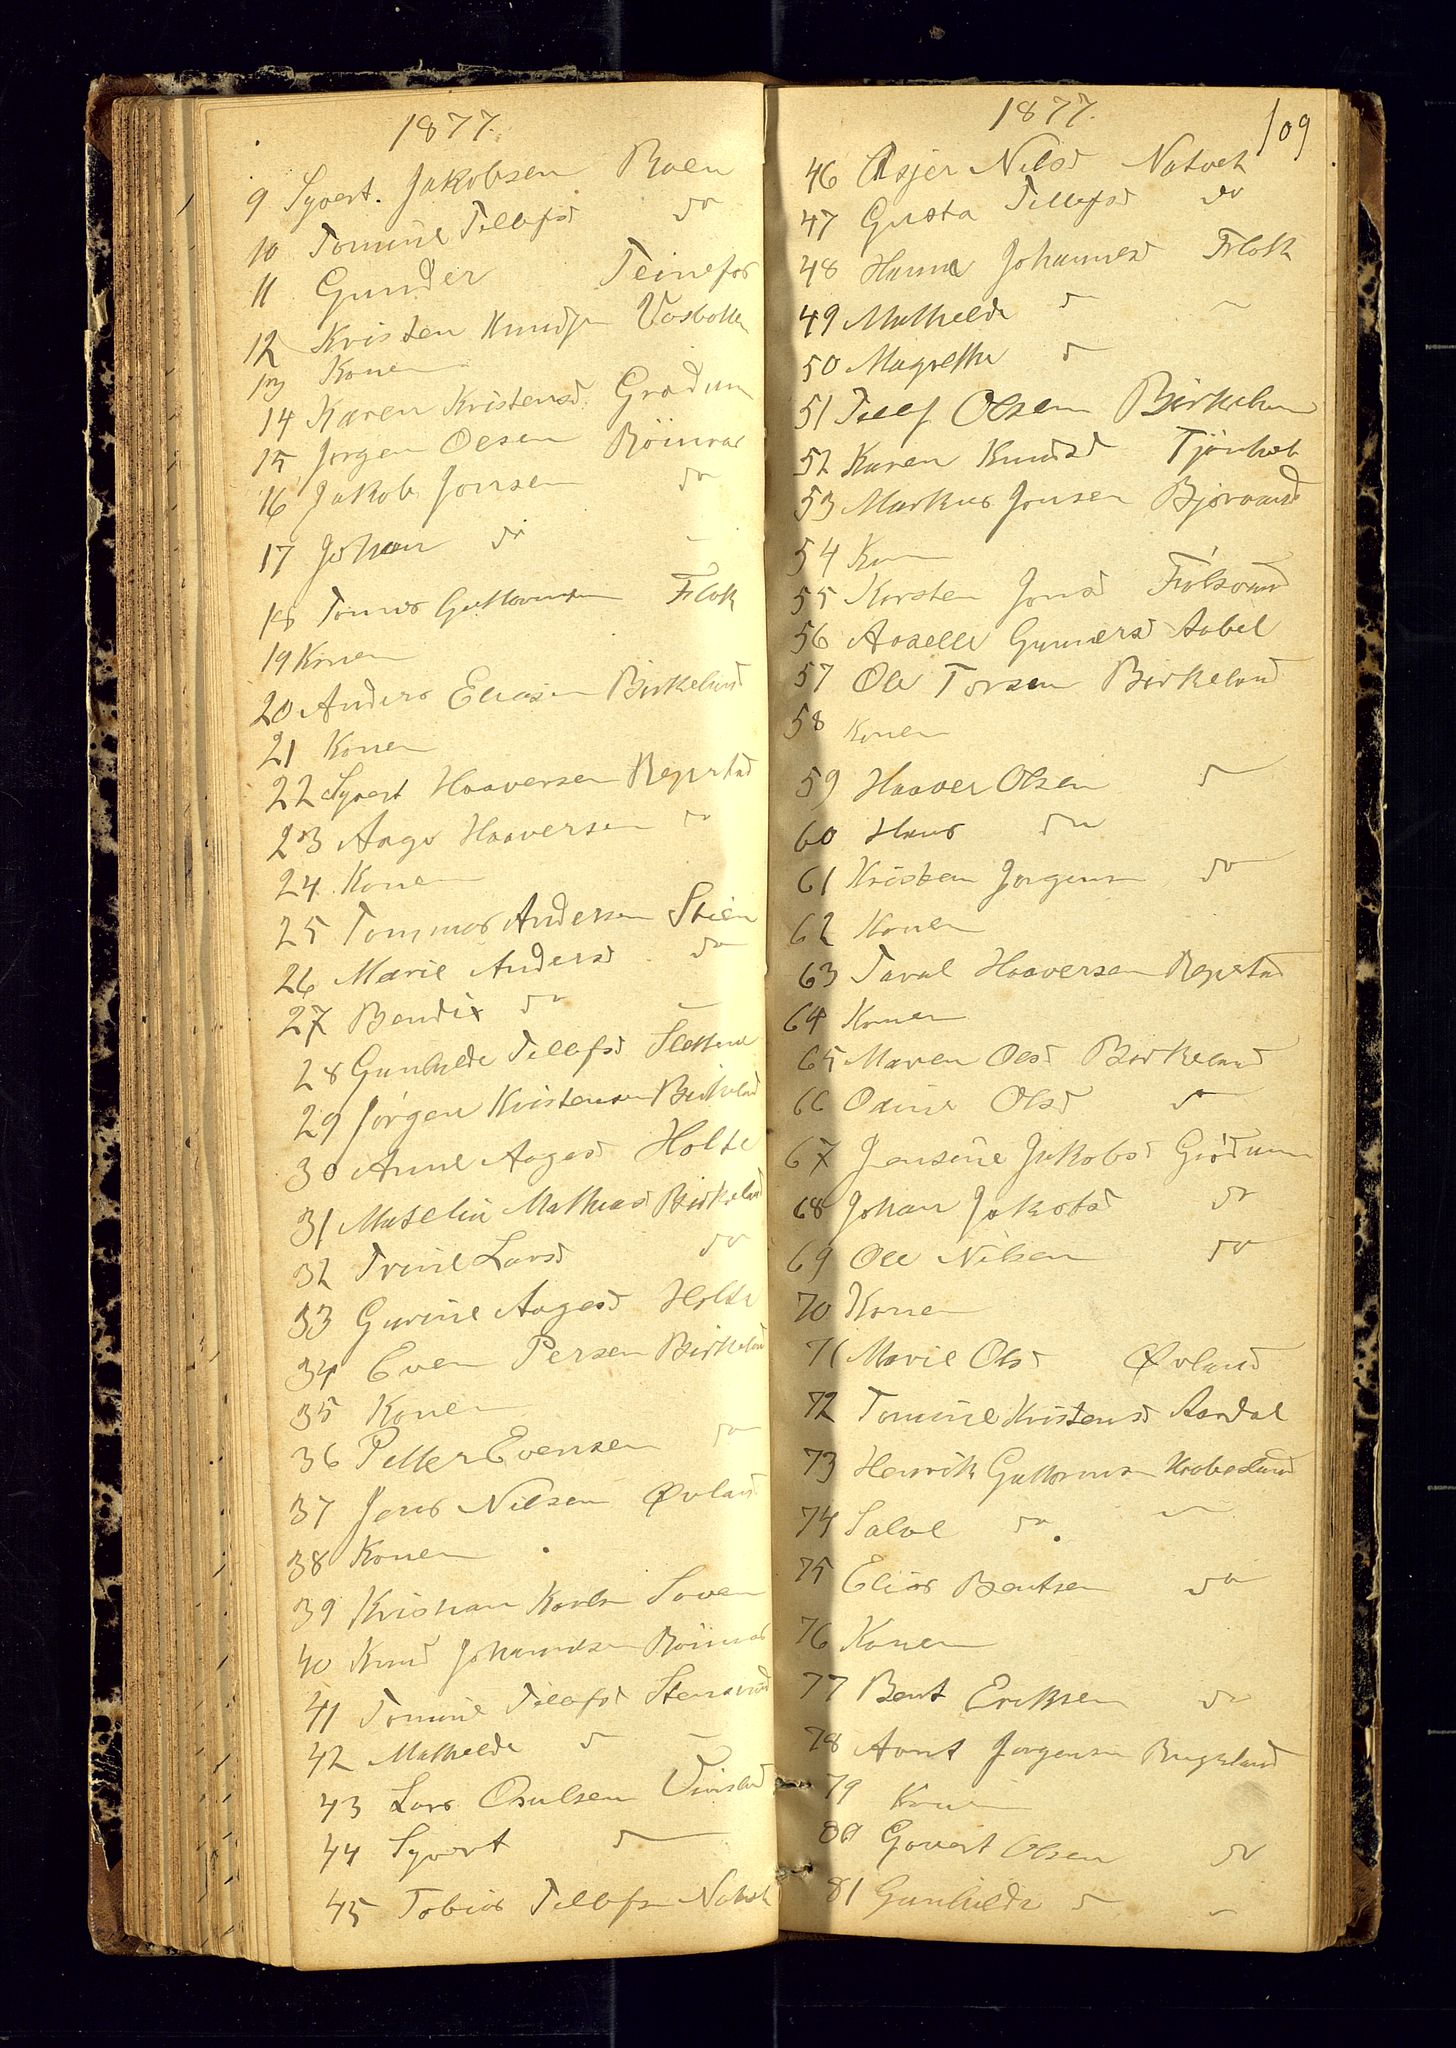 1877.
9 Syvert. Jakobsen Boen
10 Tomine Tellefsd do
11 Gunder Teinefos
12 Kristen Knudsn Vasbotten
13 Konen
14 Karen Kristensd. Grødum
15 Jørgen Olsen Röinaas
16 Jakob Jonsen do
17 Johan do —
18 Tomas Guttormsen Flok
19 Konen
20 Anders Eliasen Birkeland
21 Konen
22 Syvert Haaversen Repstad
23 Aage Haaversen do
24 Konen
25 Tommas Andersen Stien
26 Marie Andersd do
27 Bendix do —
28 Gunhilde Tellefsd
29 Jørgen Kristensen Birkeland
30 Anne Aagesd Holte
31 Mathias Birkeland
32 Trine Larsd do
33 Gurine Aagesd Holte
34 Even Persen Birkeland
35 Konen
36 Petter Evensen do
37 Jens Nilsen Øvland
38 Konen
39 Kristian
40 Knud Röinaas
41 Tomine Tellefsd
42 Mathilde d —
43 Lars Osulsen
44 Syvert d —
45 Tobias Tellefsn
1877.
109
46 Asjer Nilsd
47 Gusta Tellefsd do
48 Hanna Johannesd Flok
49 Mathilde d —
50 Magrethe d
51 Tellef Olsen Birkeland
52 Karen Knudsd
53 Markus Jonsen
54 Kon
55 Karsten Jonsd
56 Gunnersd Aabel
57 Ole Torsen Birkeland
58 Konen
59 Haaver Olsen d
60 Hans do
61 Kristen Jørgensn do
62 Konen
63 Taral Haaversen Repstad
64 Konen
65 Maren Olsd Birkeland
66 Odine Olsd do
67 Jensine Jakobsd Grødum
68 Johan Jakobsd do
69 Ole Nilsen do
70 Konen
71 Marie Olsd Øvland
72 Tomine Kristensd Aardal
73 Henrik Guttormsn
74 Salve do —
75 Elias Bentsen do
76 Konen
77 Bent Eriksen do
78 Arnt Jørgensen
79 Konen
80 Govert Olsen do
81 Gunhilde d —